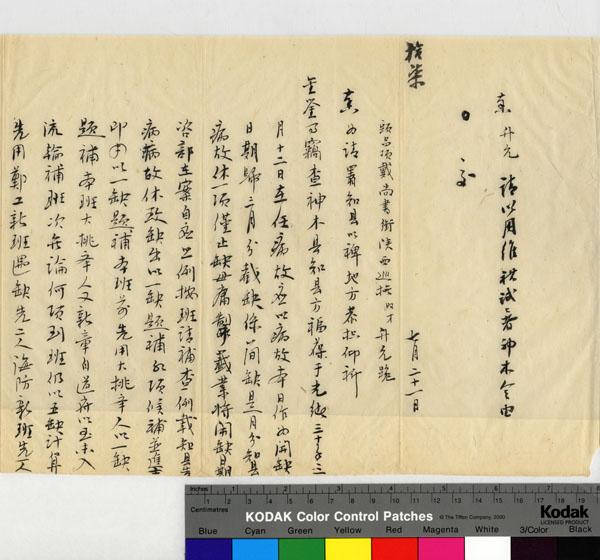 奏 升允 請以周維祺試署神木令由
七月二十一日
拾柒
頭品頂戴尚書銜陝西巡撫奴才升允跪
奏為請署知縣以裨地方恭摺仰祈
聖鑒事竊查神木县知县方福葆于光緒三十年三
月十二日在任病故应以病故本日作為開缺
日期歸三月分截缺係簡缺三月分知县
病故休一項僅止一缺毋庸製籤業將開缺日期
咨部在案自应照例按班請補查例載知县
病故休致缺出以一缺題補候補並進士
即用以一缺題補本班前先用大挑舉人以一缺
題補本班大挑舉人又新章自道府以至未入
流輪補班次無論何項到班仍以五缺計算
先用鄭工新班遇缺先二人海防新班先一人
Inches
Centimetres
KODAK Color Control Patches
© The Tiffen Company, 2000
Kodak
LICENSED PRODUCT
Blue Cyan Green Yellow Red Magenta White 3/Color Black